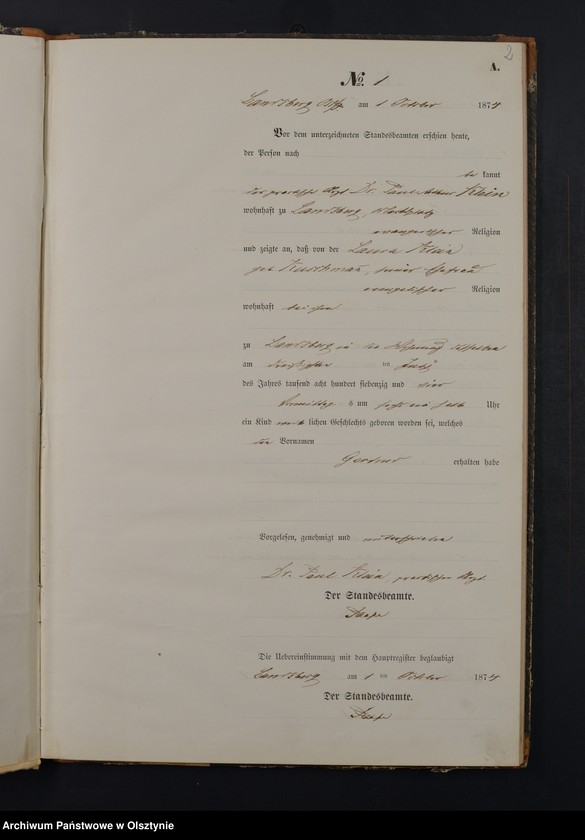 2
A.
No. 1
Landsberg O/Pr am 1 October 1874
Vor dem unterzeichneten Standesbeamten erschien heute,
der Person nach
be kannt
der practische Arzt Dr. Paul Arthur Klein
wohnhaft zu Landsberg, Marktplatz
evangelischer Religion
und zeigte an, daß von der Laura Klein
geb. seiner Ehefrau
evangelischer Religion
wohnhaft bei ihm
zu Landsberg in der Wohnung desselben
am dreißigsten ten Juli
des Jahres tausend acht hundert siebenzig und vier
Vormittags um Uhr
ein Kind weib lichen Geschlechts geboren worden sei, welches
den Vornamen
Gertrud erhalten habe
Vorgelesen, genehmigt und unterschrieben
Dr. Paul Klein, practischer Arzt
Der Standesbeamte.
Die Uebereinstimmung mit dem Hauptregister beglaubigt
Landsberg am 1 ten October 1874
Der Standesbeamte.
Archiwum Państwowe w Olsztynie